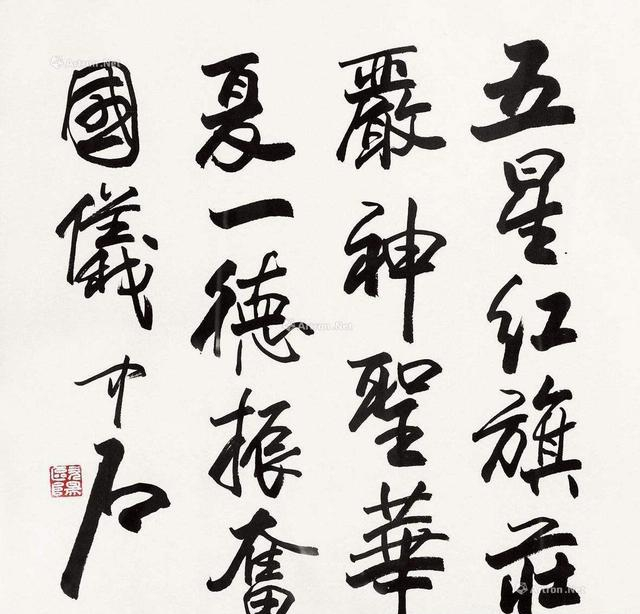 五星红旗莊
嚴神聖華
夏一德振奮
國儀中石
Artron.Net
Artron.Net
Artron.Net